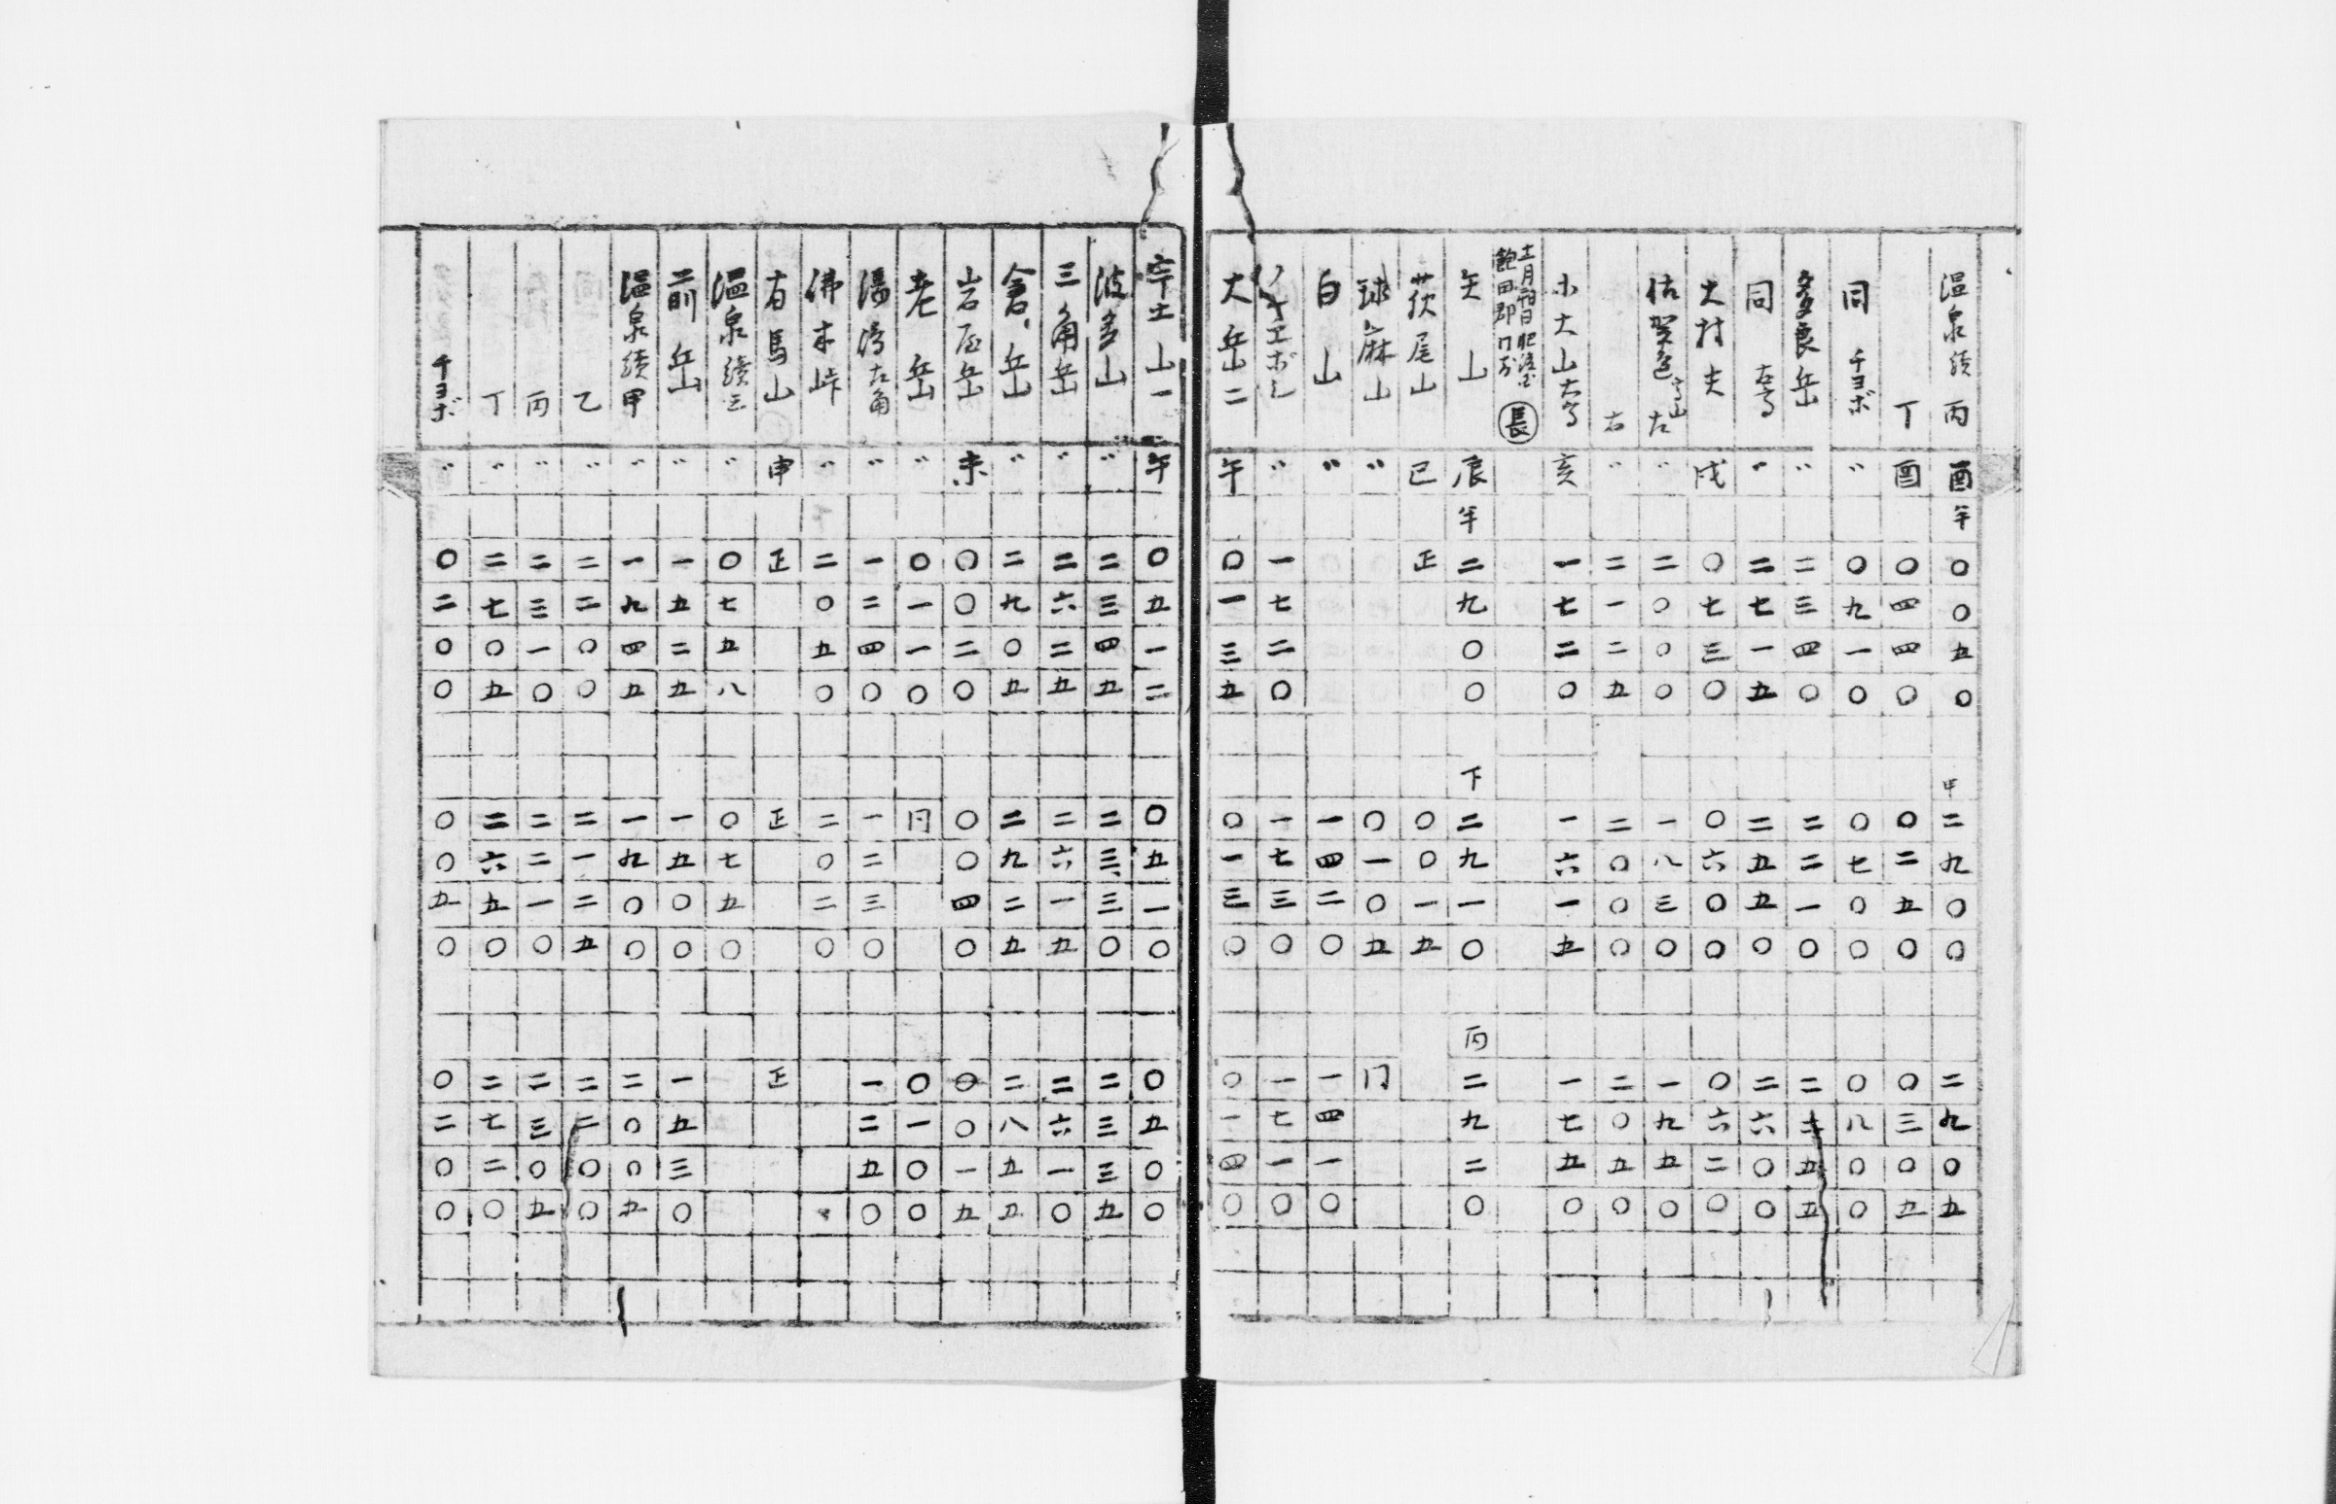 温泉続丙 酉年 〇〇五〇 甲 二九〇〇 二九〇五
丁 酉 〇四四〇 〇二五〇 〇三〇五
同 チヨボ 〃 〇九一〇 〇七〇〇 〇八〇〇
多良岳 〃 二三四〇 二二一〇 二二五五
同 〃 二七一五 二五五〇 二六〇〇
大村 戌 〇七三〇 〇六〇〇 〇六二〇
佐賀 左 〃 二〇〇〇 一八三〇 一九五〇
右 〃 二一二五 二〇〇〇 二〇五〇
大山 亥 一七二〇 一六一五 一七五〇
飽田郡 長
矢山 辰年 二九〇〇 下 二九一〇 丙 二九二〇
荻尾山 巳 正 〇〇一五
球麻山 〃 〇一〇五
白山 〃 一四二〇 一四一〇
エボシ 〃 一七二〇 一七三〇 一七一〇
大岳二 午 〇一三五 〇一三〇 〇一四〇
宇土山一 午 〇五一二 〇五一〇 〇五〇〇
波多山 〃 二三四五 二三三〇 二三三五
三角岳 〃 二六二五 二六一五 二六一〇
倉岳 〃 二九〇五 二九二五 二八五五
岩屋岳 未 〇〇二〇 〇〇四〇 〇〇一五
老岳 〃 〇一一〇 〇一〇〇
湯 左角 〃 一二四〇 一二三〇 一二五〇
佛木峠 〃 二〇五〇 二〇二〇
有馬山 申 正 正 正
温泉続 〃 〇七五八 〇七五〇
前岳 〃 一五二五 一五〇〇 一五三〇
温泉続甲 〃 一九四五 一九〇〇 二〇〇五
乙 〃 二二〇〇 二一二五 二二〇〇
丙 〃 二三一〇 二二一〇 二三〇五
丁 〃 二七〇五 二六五〇 二七二〇
チヨボ 〃 〇二〇〇 〇〇五〇 〇二〇〇